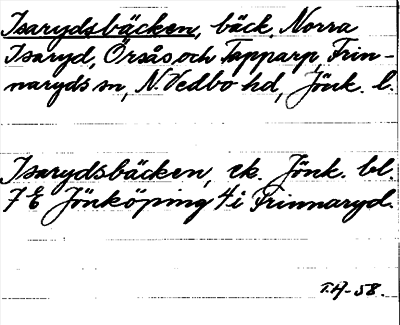 Isarydsbäcken, bäck, Norra
Isaryd, Örsås och Tapparp, Frin-
naryds sn, N. Vedbo hd, Jönk. l.
Isarydsbäcken, ek. Jönk. bl.
7 E Jönköping 4 i Frinnaryd.
T.H-58.